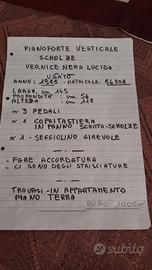 PIANOFORTE VERTICALE
SCHOLZE
VERNICE NERA LUCIDA
USATO
ANNO: 1985 - MATRICOLE:
LARGH. cm 145
PROFONDITÀ cm. 56
ALTEZZA cm 118
n° 3 PEDALI
n° 1 COPRITASTIERA
IN PANNO SCRITTO-SCHOLZE
n° 1 - SEGGIOLINO GIREVOLE
- FARE ACCORDATURA
- CI SONO DEGLI STRISCIATURE
TROVASI - IN APPARTAMENTO
PIANO TERRA
EURO 1000
subito